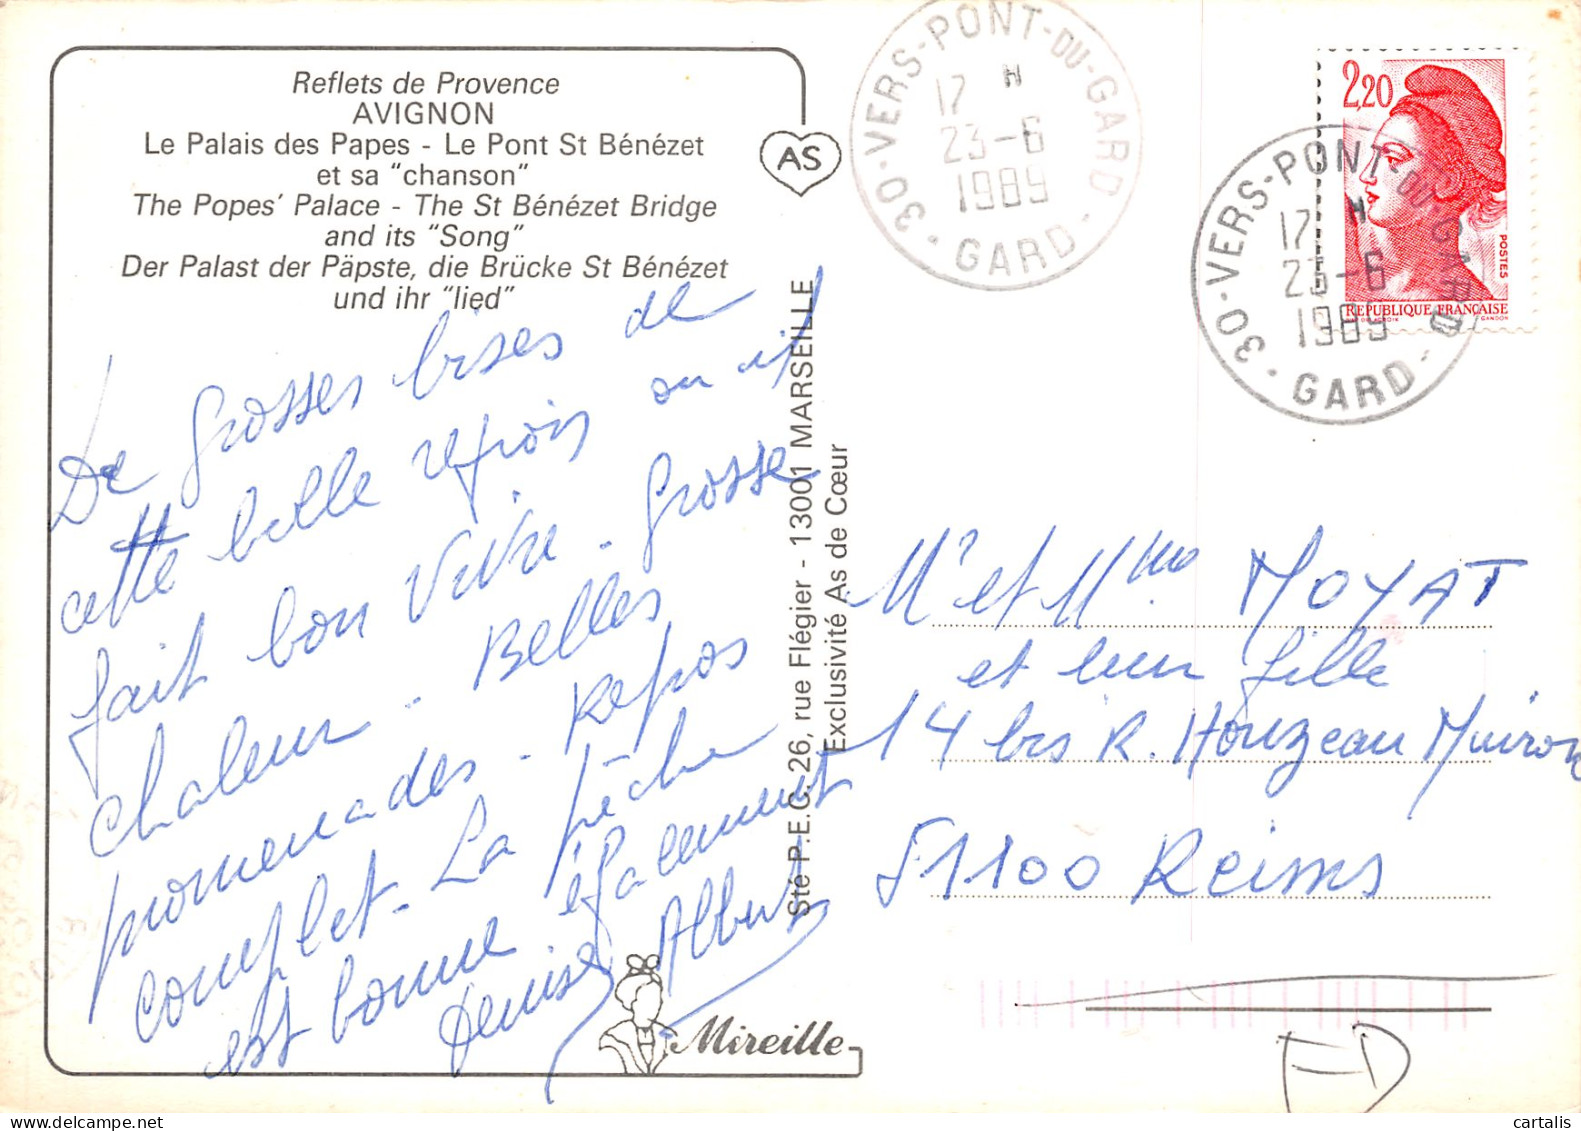 Reflets de Provence
AVIGNON
Le Palais des Papes - Le Pont St Bénézet
et sa "chanson"
The Popes' Palace - The St Bénézet Bridge
and its "Song"
Der Palast der Päpste, die Brücke St Bénézet
und ihr "lied"
AS
De grosses bises de
cette belle région ou il
fait bon vivre - grosse
chaleur - Belles
promenades - Repos
complet - La pêche
est bonne également
Denise Albert
Mireille
Sté P.E.C. 26, rue Flégier - 13001 MARSEILLE
Exclusivité As de Cœur
30-VERS-PONT-DU-GARD
17 H
23-6
1989
GARD
2,20
POSTES
REPUBLIQUE FRANÇAISE
DELACROIX GANDON
30-VERS-PONT-DU-GARD
17 H
23-6
1989
GARD
Mr et Mme MOYAT
et leur fille
14 bis R. Houzeau Muiron
51100 Reims
FD
cartalis